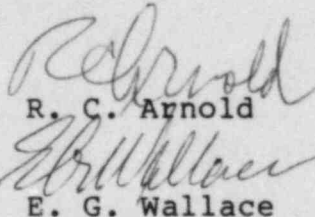 RCArnold
R. C. Arnold
EGWallace
E. G. Wallace